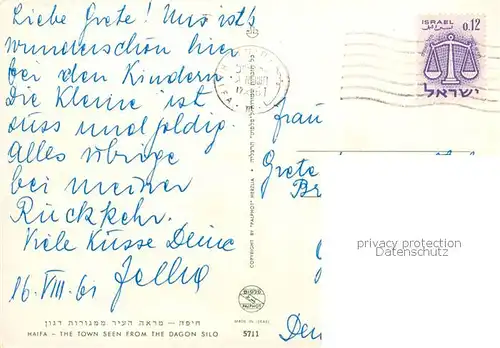 Liebe Grete! Uns ist's
wunderschön hier
bei den Kindern.
Die Kleine ist
süss und goldig.
Alles übrige
bei meiner
Rückkehr.
Viele Küsse Deine
16. VIII. 61
חיפה – מראה העיר ממגורות דגון
HAIFA – THE TOWN SEEN FROM THE DAGON SILO
5711
MADE IN ISRAEL
COPYRIGHT BY "PALPHOT" HERZLIA
HAIFA
ISRAEL
0.12
ישראל
Frau
Grete
Br
privacy protection
Datenschutz
Den